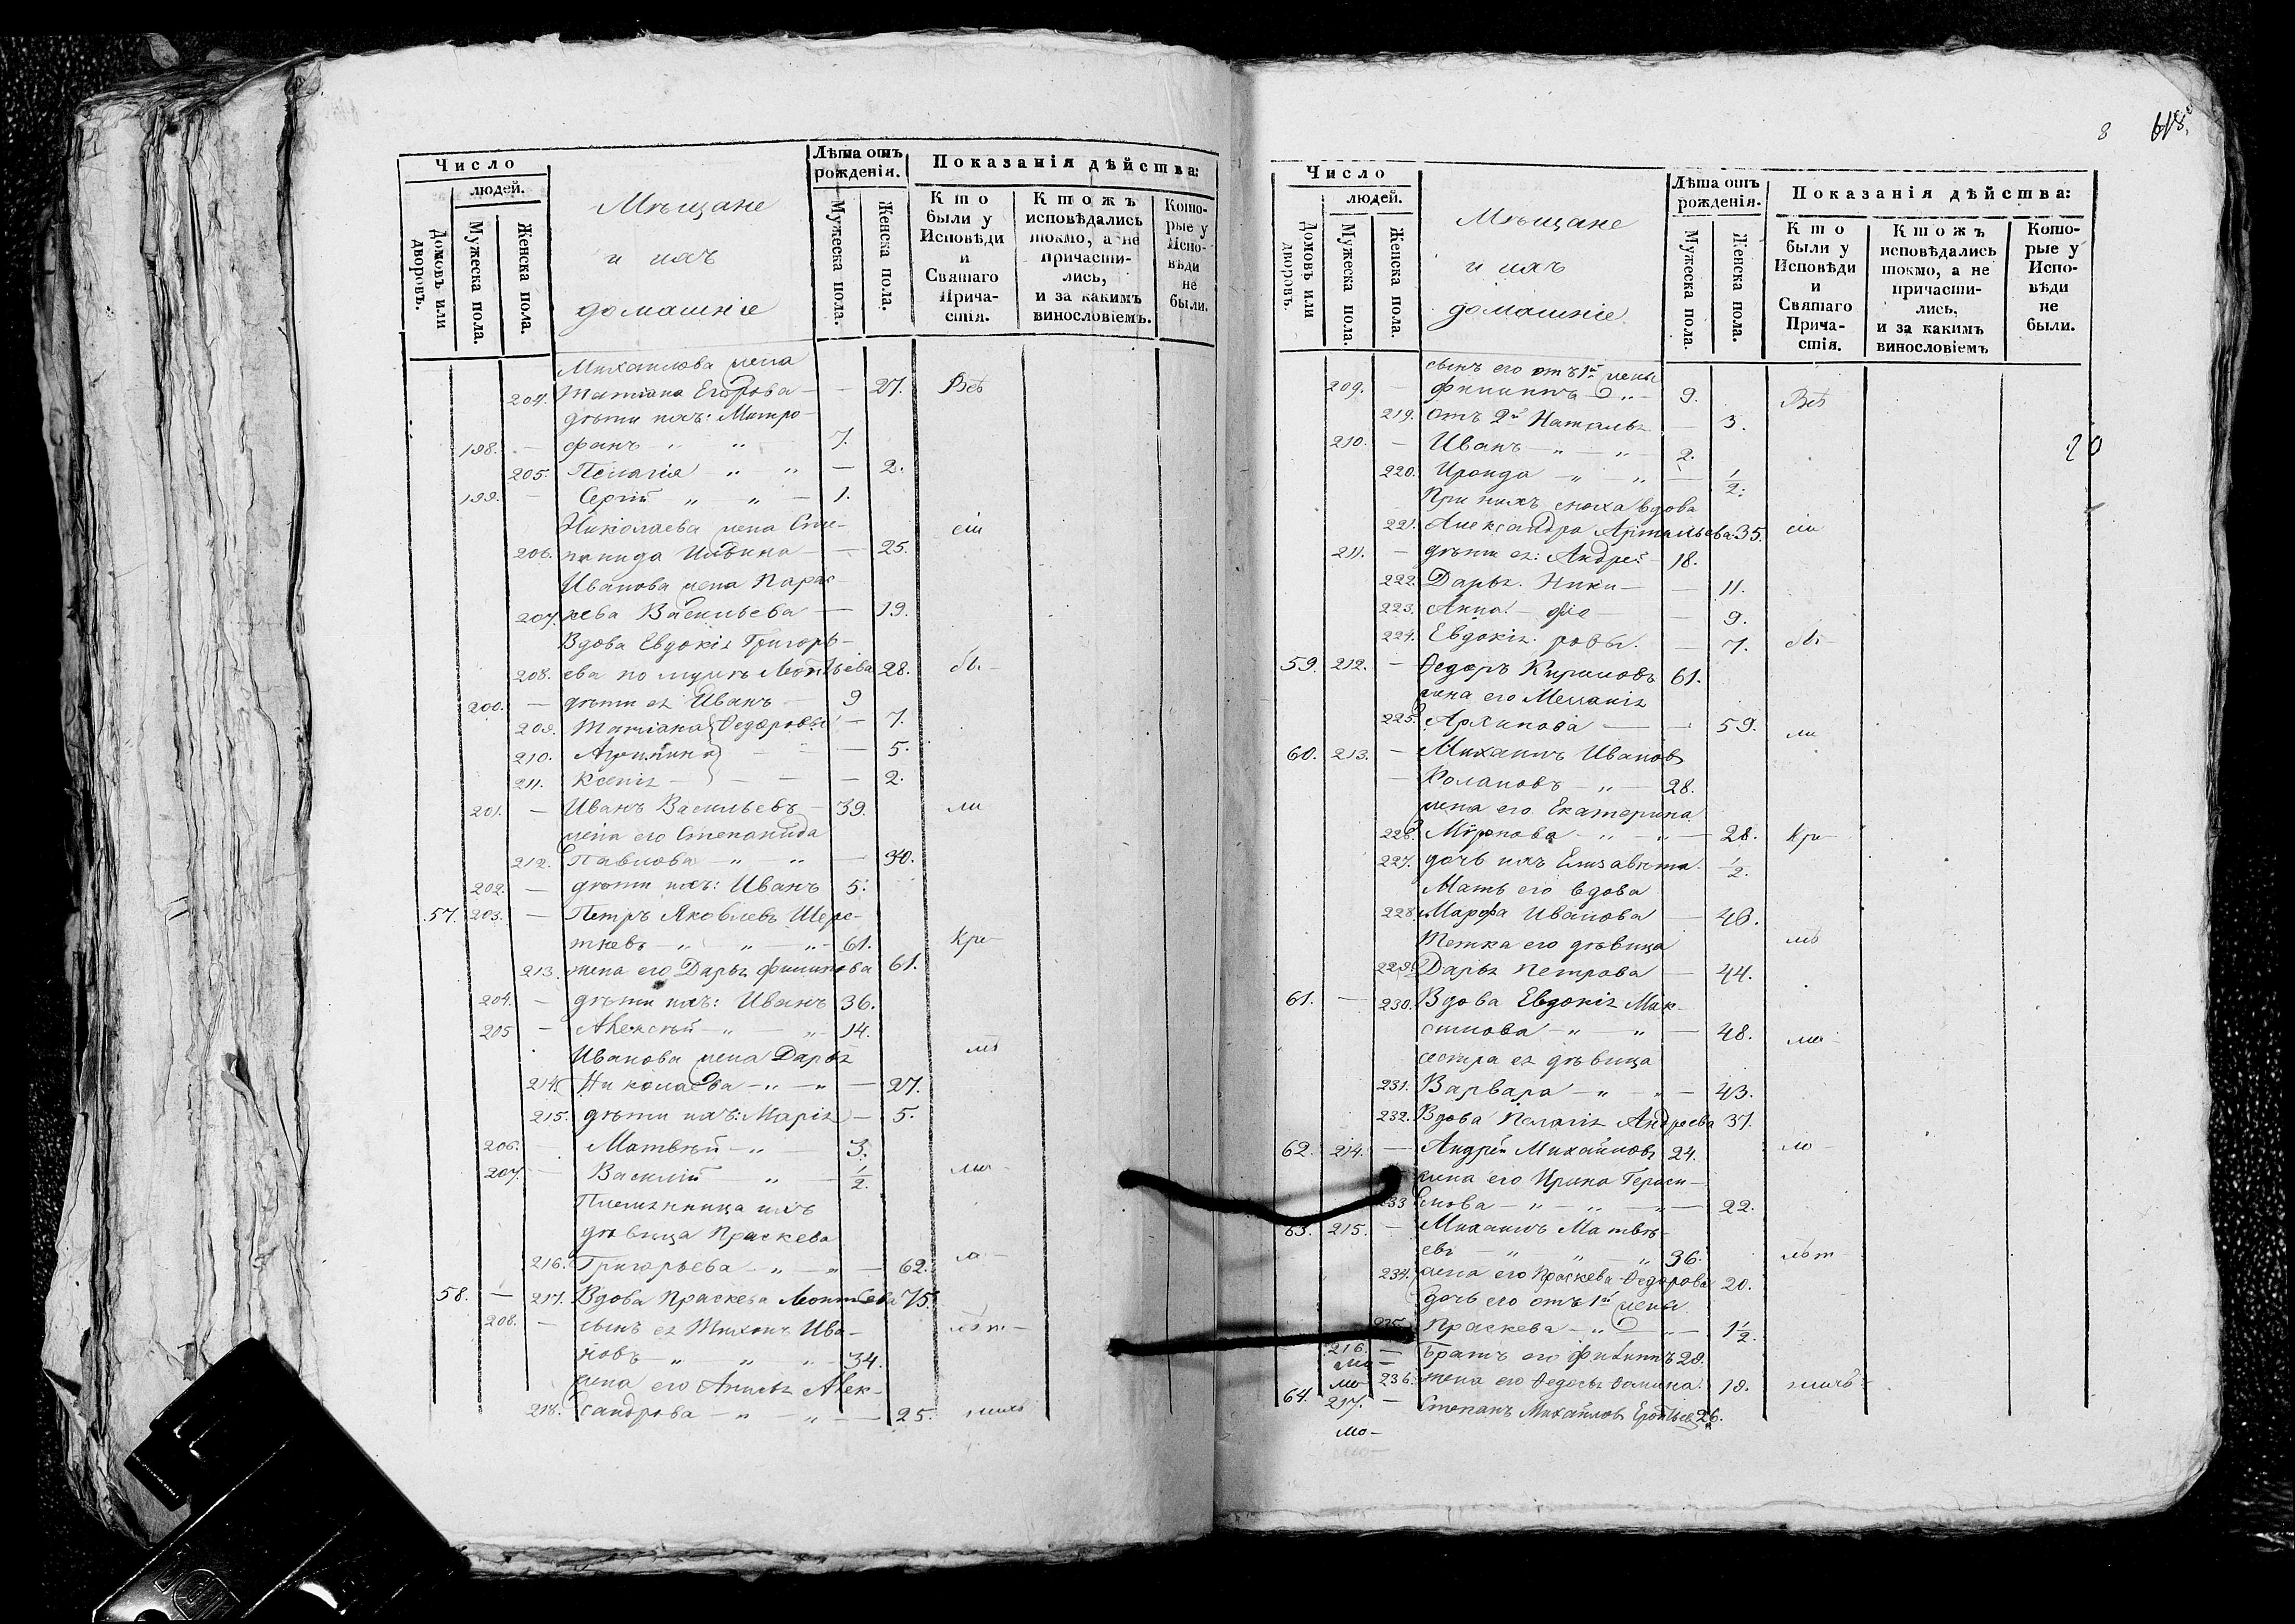 Число
людей.
Домовъ или дворовъ.
Мужеска пола.
Женска пола.
Мѣщане
и ихъ
домашніе
Лѣта отъ рожденія.
Мужеска пола.
Женска пола.
Показанія дѣйства:
Кто были у Исповѣди и Святаго Причастія.
Ктожъ исповѣдались токмо, а не причастились, и за какимъ винословіемъ.
Которые у Исповѣди не были.
Михаилова жена
204. Татіана Егорова — — 27. Всѣ
дѣти ихъ: Митро-
198. — фанъ „ „ 7.
205. Пелагія „ „ — 2.
199. — Сергій „ „ — 1.
Николаева жена Сте-
сіи
206. панида Ильина — — 25.
Иванова жена Парас-
207. кева Васильева — 19.
Вдова Евдокія Григорь-
208. ева по мужѣ Леонтьева 28. бы-
200. — дѣти ея Иванъ 9
209. Татіана Ѳедоровы — 7.
210. Агрипина — — — 5.
211. Ксенія — — — — 2.
201. — Иванъ Васильевъ — 39. ли
жена его Степанида
212. Павлова — „ „ — 30.
202. — дѣти ихъ: Иванъ 5.
57. 203. — Петръ Яковлевъ Шере-
тневъ — „ „ — „ — 61. Кро-
213. жена его Дарья Филипова 61.
204. — дѣти ихъ: Иванъ 36.
205 — Алексѣй — „ — „ — 14.
Иванова жена Дарья
мѣ
214. Николаева — „ — „ — — 27.
215. дѣти ихъ: Марія — 5.
206. — Матвѣй — „ — 3.
207. — Василій „ — 1/2.
Племянница ихъ
дѣвица Праскева
216. Григорьева — „ — „ — 62.
58. — 217. Вдова Праскева Леонтьева 75.
208. — сынъ ея Тихонъ Ива-
лѣт-
новъ — „ „ „ — 34.
жена его Анисья Алек-
218. сандрова — „ — „ — — 25.
8
Число
людей.
Домовъ или дворовъ.
Мужеска пола.
Женска пола.
Мѣщане
и ихъ
домашніе
Лѣта отъ рожденія.
Мужеска пола.
Женска пола.
Показанія дѣйства:
Кто были у Исповѣди и Святаго Причастія.
Ктожъ исповѣдались токмо, а не причастились, и за какимъ винословіемъ
Которые у Исповѣди не были.
сынъ его отъ 1й жены
209. — Филиппъ — „ — 9.
Всѣ
219. отъ 2й Наталья — 3.
210. — Иванъ — „ — „ — 2.
220. Ираида — „ — „ — — 1/2.
При нихъ сноха вдова
221. Александра Артемьева 35. сіи
211. — дѣти ея: Андрей — 18.
222. Дарья Ники- — — 11.
223. Анна — фо- — 9.
224. Евдокія ровы. — 7. бы-
59. 212. — Ѳедоръ Кириловъ 61.
жена его Меланія
225. Архипова — — 59.
ли
60. 213. — Михаилъ Ивановъ
— „ — 28.
жена его Екатерина
226. Миронова — „ — „ — 28. Кро-
227. дочь ихъ Елизавета. 1/2.
Мать его вдова
228. Марфа Иванова — 46.
Тетка его дѣвица
мѣ
229. Дарья Петрова — 44.
61. — 230. Вдова Евдокія Мак-
симова — „ — „ — 48.
сестра ея дѣвица
231. Варвара — „ — „ — 43.
232. Вдова Пелагія Андреева 37.
62. 214. — Андрей Михайловъ 24.
жена его Ирина Гераси-
233 мова — „ — „ — „ — 22.
63. 215. — Михаилъ Матвѣ-
евъ — „ „ „ 36.
лѣт-
234. жена его Праскева Ѳедорова 20.
дочь его отъ 1й жены
235. Праскева — „ — „ — 1 1/2.
216. — Братъ его Филипъ 28.
236. жена его Ѳедосья Фомина. 18.
64. 217. — Степанъ Михайловъ 26.
мо-